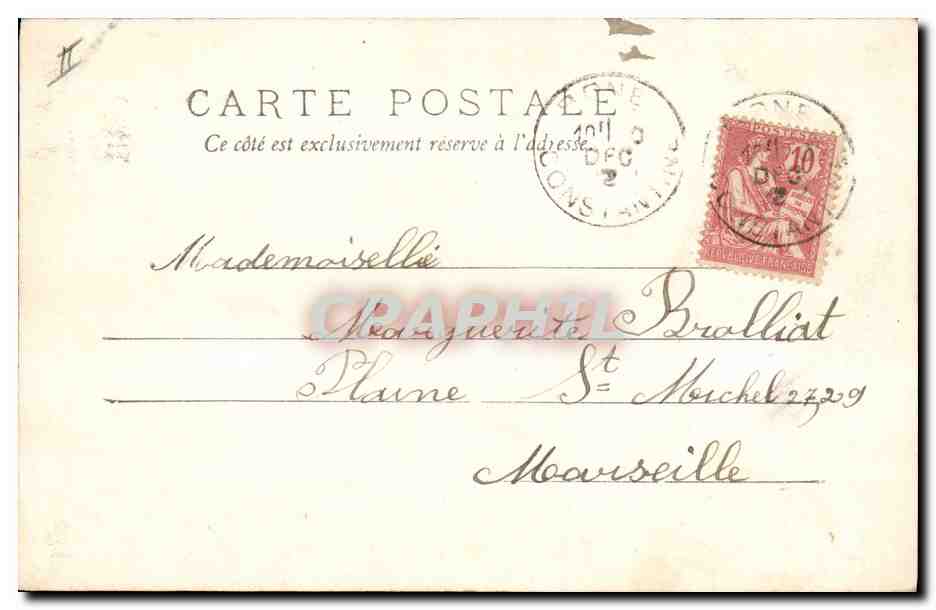 II
CARTE POSTALE
Ce côté est exclusivement réservé à l'adresse.
BONE
DEC
2
CONSTANTINE
POSTES
10
REPUBLIQUE FRANÇAISE
Mademoiselle
Marguerite Brolliat
Plaine St Michel 27,29
Marseille
CPAPHIL